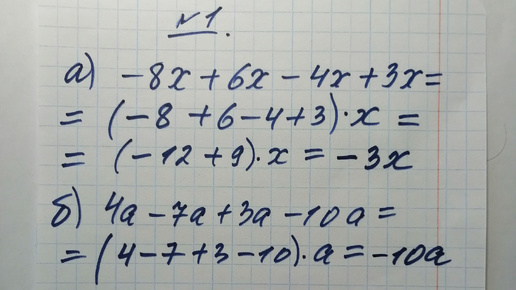 №1.
а) -8x + 6x - 4x + 3x =
= (-8 + 6 - 4 + 3) · x =
= (-12 + 9) · x = -3x
б) 4a - 7a + 3a - 10a =
= (4 - 7 + 3 - 10) · a = -10a